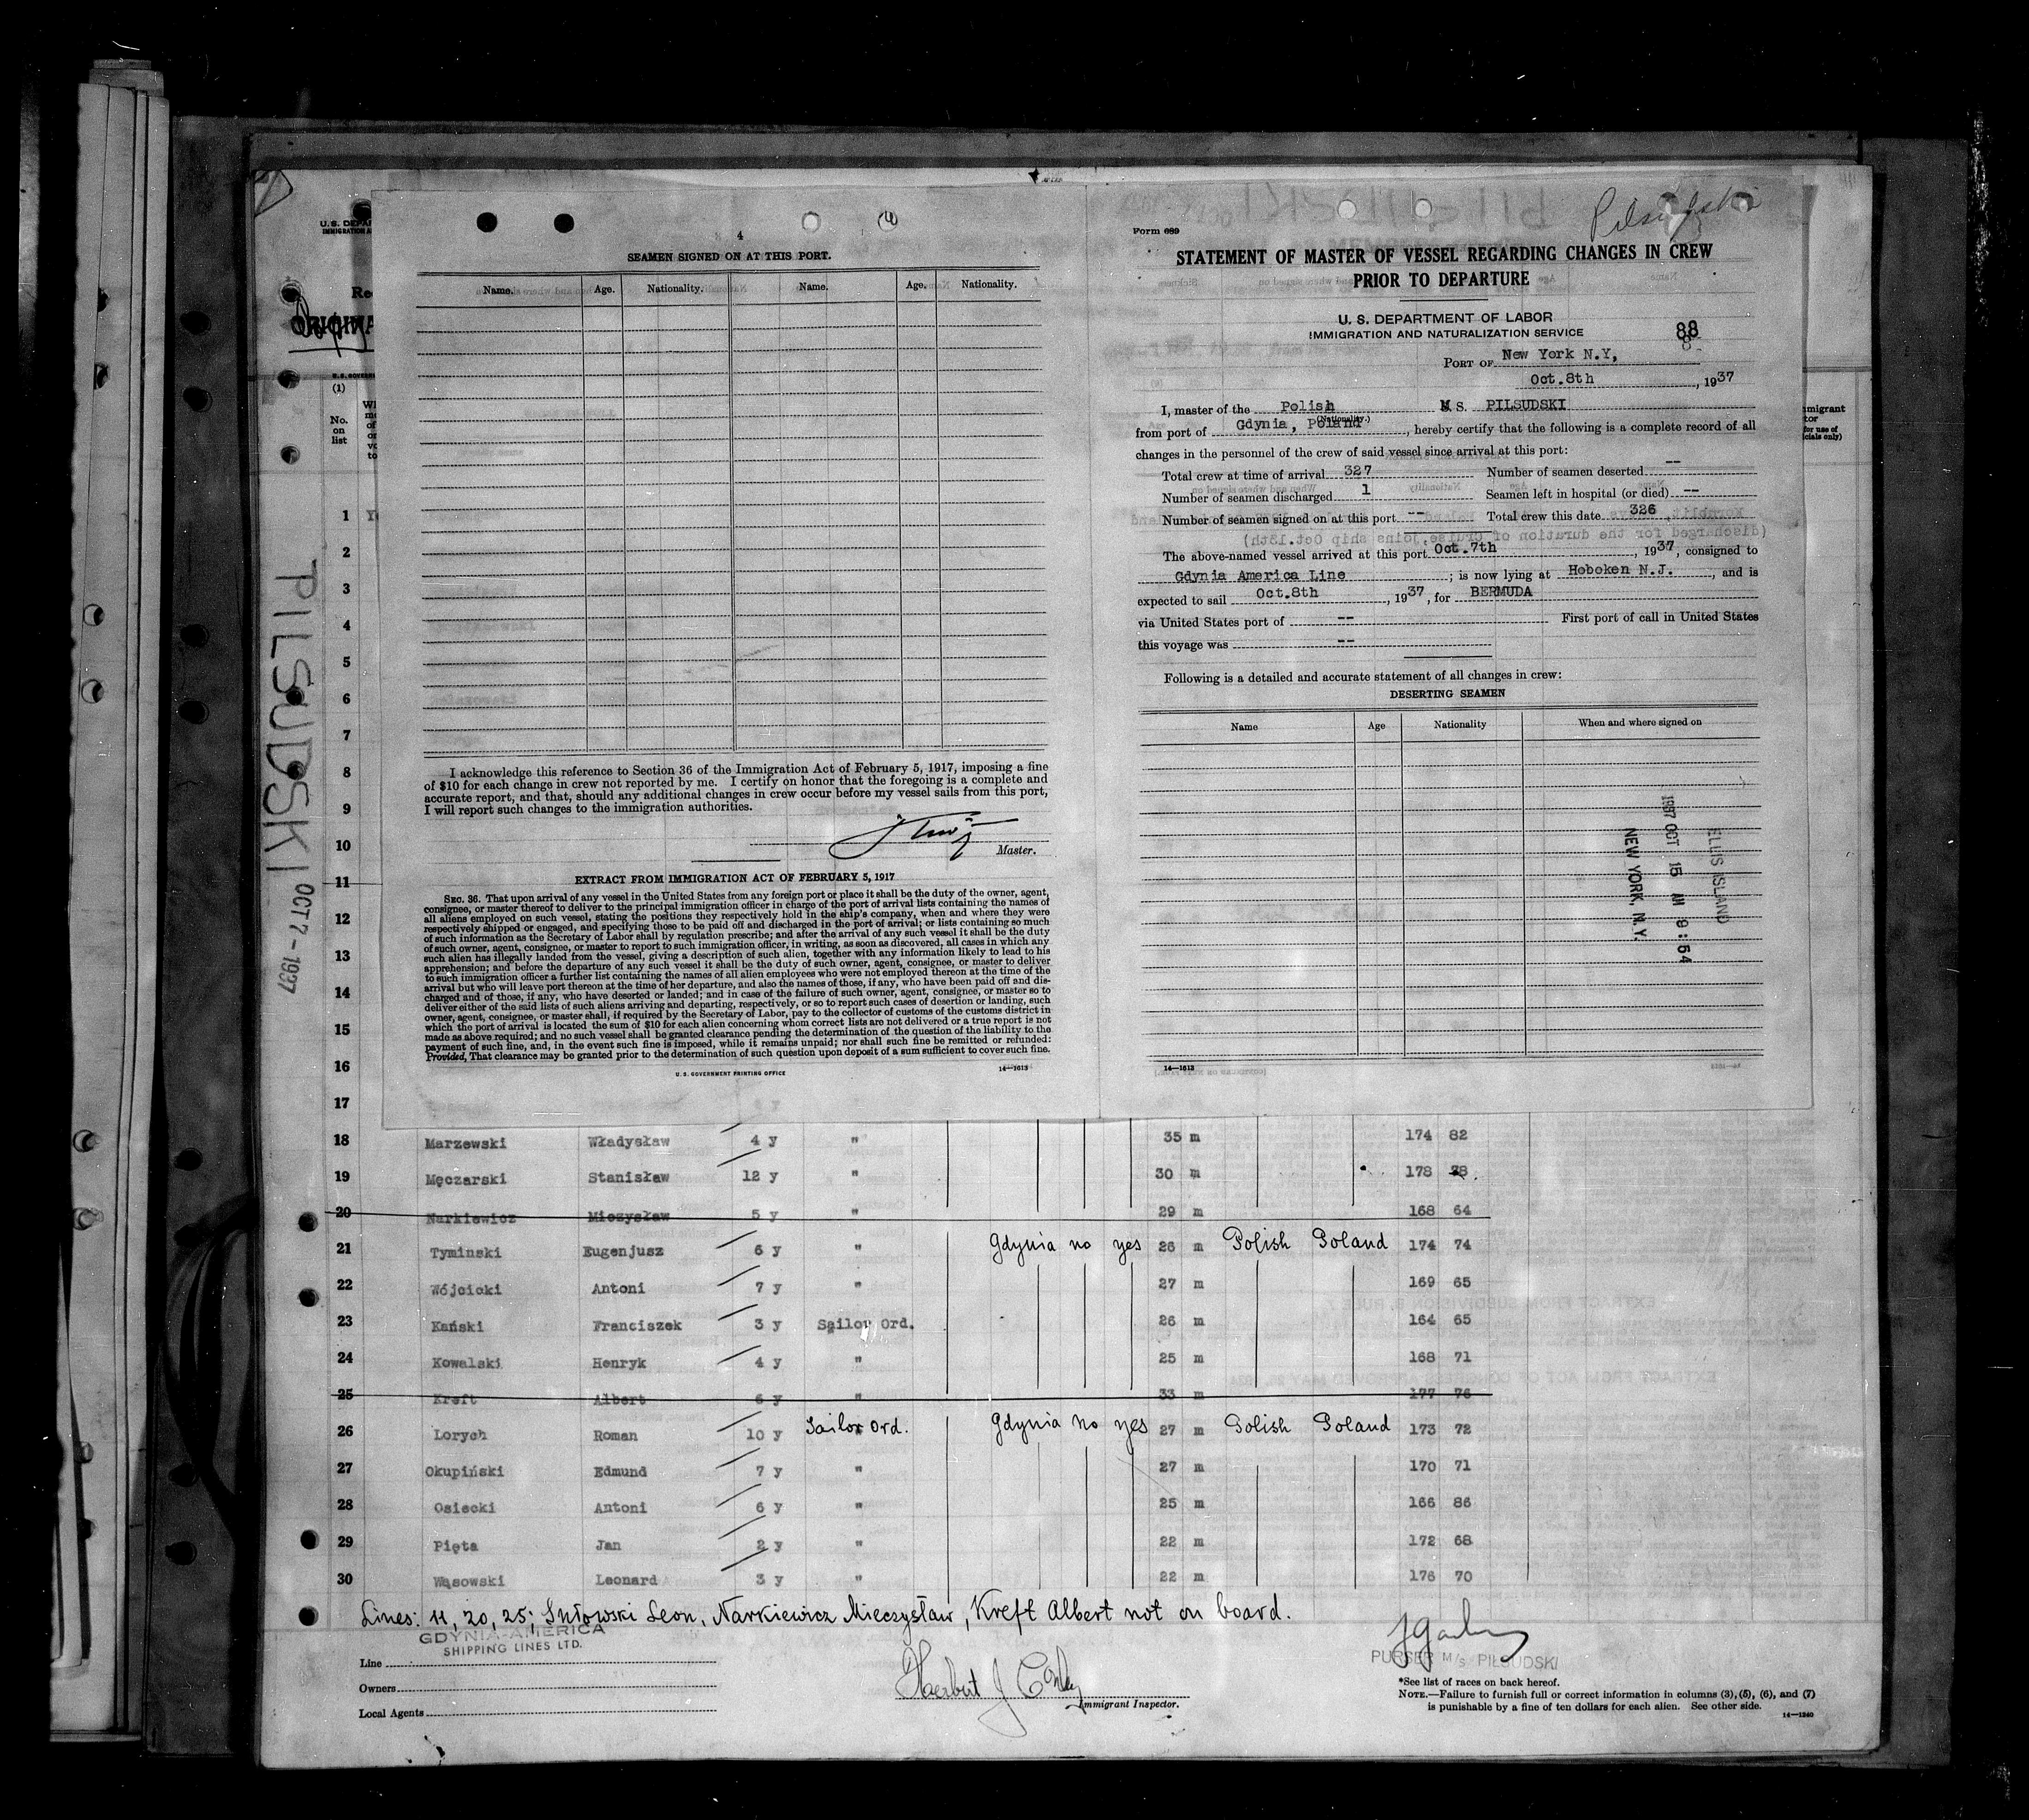 4
SEAMEN SIGNED ON AT THIS PORT.
Name. Age. Nationality. Name. Age. Nationality.
I acknowledge this reference to Section 36 of the Immigration Act of February 5, 1917, imposing a fine
of $10 for each change in crew not reported by me. I certify on honor that the foregoing is a complete and
accurate report, and that, should any additional changes in crew occur before my vessel sails from this port,
I will report such changes to the immigration authorities.
Master.
EXTRACT FROM IMMIGRATION ACT OF FEBRUARY 5, 1917
SEC. 36. That upon arrival of any vessel in the United States from any foreign port or place it shall be the duty of the owner, agent,
consignee, or master thereof to deliver to the principal immigration officer in charge of the port of arrival lists containing the names of
all aliens employed on such vessel, stating the positions they respectively hold in the ship's company, when and where they were
respectively shipped or engaged, and specifying those to be paid off and discharged in the port of arrival; or lists containing so much
of such information as the Secretary of Labor shall by regulation prescribe; and after the arrival of any such vessel it shall be the duty
of such owner, agent, consignee, or master to report to such immigration officer, in writing, as soon as discovered, all cases in which any
such alien has illegally landed from the vessel, giving a description of such alien, together with any information likely to lead to his
apprehension; and before the departure of any such vessel it shall be the duty of such owner, agent, consignee, or master to deliver
to such immigration officer a further list containing the names of all alien employees who were not employed thereon at the time of the
arrival but who will leave port thereon at the time of her departure, and also the names of those, if any, who have been paid off and dis-
charged and of those, if any, who have deserted or landed; and in case of the failure of such owner, agent, consignee, or master so to
deliver either of the said lists of such aliens arriving and departing, respectively, or so to report such cases of desertion or landing, such
owner, agent, consignee, or master shall, if required by the Secretary of Labor, pay to the collector of customs of the customs district in
which the port of arrival is located the sum of $10 for each alien concerning whom correct lists are not delivered or a true report is not
made as above required; and no such vessel shall be granted clearance pending the determination of the question of the liability to the
payment of such fine, and, in the event such fine is imposed, while it remains unpaid; nor shall such fine be remitted or refunded:
Provided, That clearance may be granted prior to the determination of such question upon deposit of a sum sufficient to cover such fine.
U. S. GOVERNMENT PRINTING OFFICE 14—1613
Pilsudski
Form 689
STATEMENT OF MASTER OF VESSEL REGARDING CHANGES IN CREW
PRIOR TO DEPARTURE
U. S. DEPARTMENT OF LABOR
IMMIGRATION AND NATURALIZATION SERVICE
88
PORT OF New York N.Y,
Oct.8th, 1937
I, master of the Polish M.S. PILSUDSKI
(Nationality.)
from port of Gdynia, Poland, hereby certify that the following is a complete record of all
changes in the personnel of the crew of said vessel since arrival at this port:
Total crew at time of arrival 327 Number of seamen deserted --
Number of seamen discharged 1 Seamen left in hospital (or died) --
Number of seamen signed on at this port -- Total crew this date 326
The above-named vessel arrived at this port Oct.7th, 1937, consigned to
Gdynia America Line; is now lying at Hoboken N.J., and is
expected to sail Oct.8th, 1937, for BERMUDA
via United States port of -- First port of call in United States
this voyage was --
Following is a detailed and accurate statement of all changes in crew:
DESERTING SEAMEN
Name Age Nationality When and where signed on
ELLIS ISLAND
1937 OCT 15 AM 9:54
NEW YORK, N.Y.
14—1613
PILSUDSKI OCT 7-1937
(1)
No.
on
list
1
2
3
4
5
6
7
8
9
10
11
12
13
14
15
16
17
18 Marzewski Władysław 4 y " 35 m 174 82
19 Męczarski Stanisław 12 y " 30 m 178
20 Narkiewicz Mieczysław 5 y " 29 m 168 64
21 Tyminski Eugenjusz 6 y " Gdynia no yes 26 m Polish Poland 174 74
22 Wójcicki Antoni 7 y " 27 m 169 65
23 Kański Franciszek 3 y Sailor Ord. 26 m 164 65
24 Kowalski Henryk 4 y " 25 m 168 71
25 Kreft Albert 6 y " 33 m 177 76
26 Lorych Roman 10 y Sailor Ord. Gdynia no yes 27 m Polish Poland 173 72
27 Okupiński Edmund 7 y " 27 m 170 71
28 Osiecki Antoni 6 y " 25 m 166 86
29 Pięta Jan 2 y " 22 m 172 68
30 Wąsowski Leonard 3 y " 22 m 176 70
Lines: 11, 20, 25; Leon, Narkiewicz Mieczysław, Kreft Albert not on board.
GDYNIA-AMERICA
SHIPPING LINES LTD.
Line
Owners
Local Agents
Herbert J
Immigrant Inspector.
PURSER M/S PIŁSUDSKI
*See list of races on back hereof.
NOTE.—Failure to furnish full or correct information in columns (3), (5), (6), and (7)
is punishable by a fine of ten dollars for each alien. See other side.
14—1240